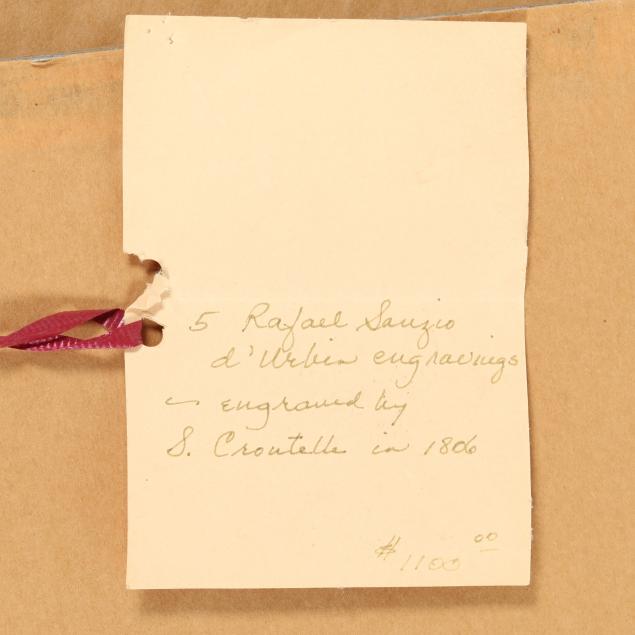 5 Rafael Sanzio
d'Urbin engravings
engraved by
S. Croutelle in 1806
$1100 00